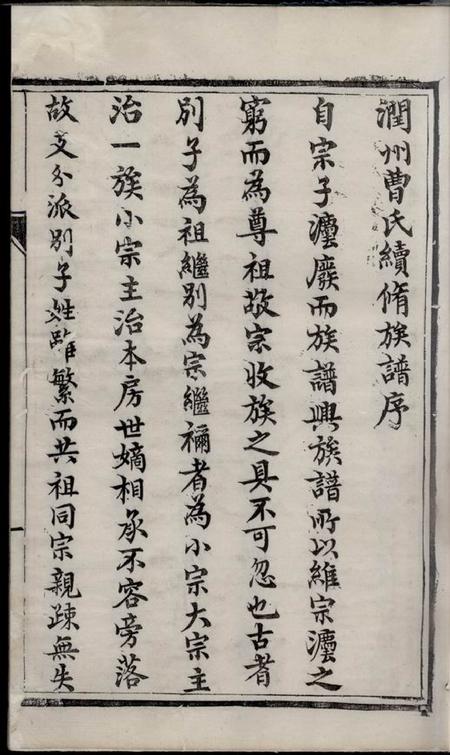 潤州曹氏續脩族譜序
自宗子灋廢而族譜興族譜所以維宗灋之
窮而為尊祖敬宗收族之具不可忽也古者
別子為祖繼別為宗繼禰者為小宗大宗主
治一族小宗主治本房世嫡相承不容旁落
故支分派別子姓雖繁而共祖同宗親踈無失